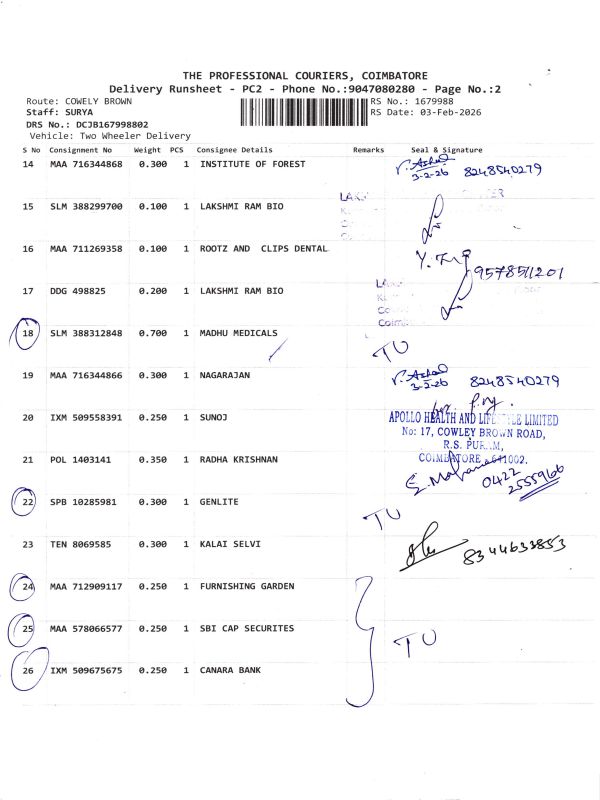 THE PROFESSIONAL COURIERS, COIMBATORE
Delivery Runsheet - PC2 - Phone No.:9047080280 - Page No.:2
Route: COWELY BROWN
RS No.: 1679988
Staff: SURYA
RS Date: 03-Feb-2026
DRS No.: DCJB167998802
Vehicle: Two Wheeler Delivery
S No Consignment No Weight PCS Consignee Details Remarks Seal & Signature
14 MAA 716344868 0.300 1 INSTITUTE OF FOREST
3-2-26 8248540279
15 SLM 388299700 0.100 1 LAKSHMI RAM BIO
16 MAA 711269358 0.100 1 ROOTZ AND CLIPS DENTAL
9578511201
17 DDG 498825 0.200 1 LAKSHMI RAM BIO
18 SLM 388312848 0.700 1 MADHU MEDICALS
TU
19 MAA 716344866 0.300 1 NAGARAJAN
3-2-26 8248540279
20 IXM 509558391 0.250 1 SUNOJ
APOLLO HEALTH AND LIFESTYLE LIMITED
No: 17, COWLEY BROWN ROAD,
R.S. PURAM,
COIMBATORE - 641002.
21 POL 1403141 0.350 1 RADHA KRISHNAN
0422
2555966
22 SPB 10285981 0.300 1 GENLITE
TU
23 TEN 8069585 0.300 1 KALAI SELVI
8344633853
24 MAA 712909117 0.250 1 FURNISHING GARDEN
25 MAA 578066577 0.250 1 SBI CAP SECURITES
TU
26 IXM 509675675 0.250 1 CANARA BANK